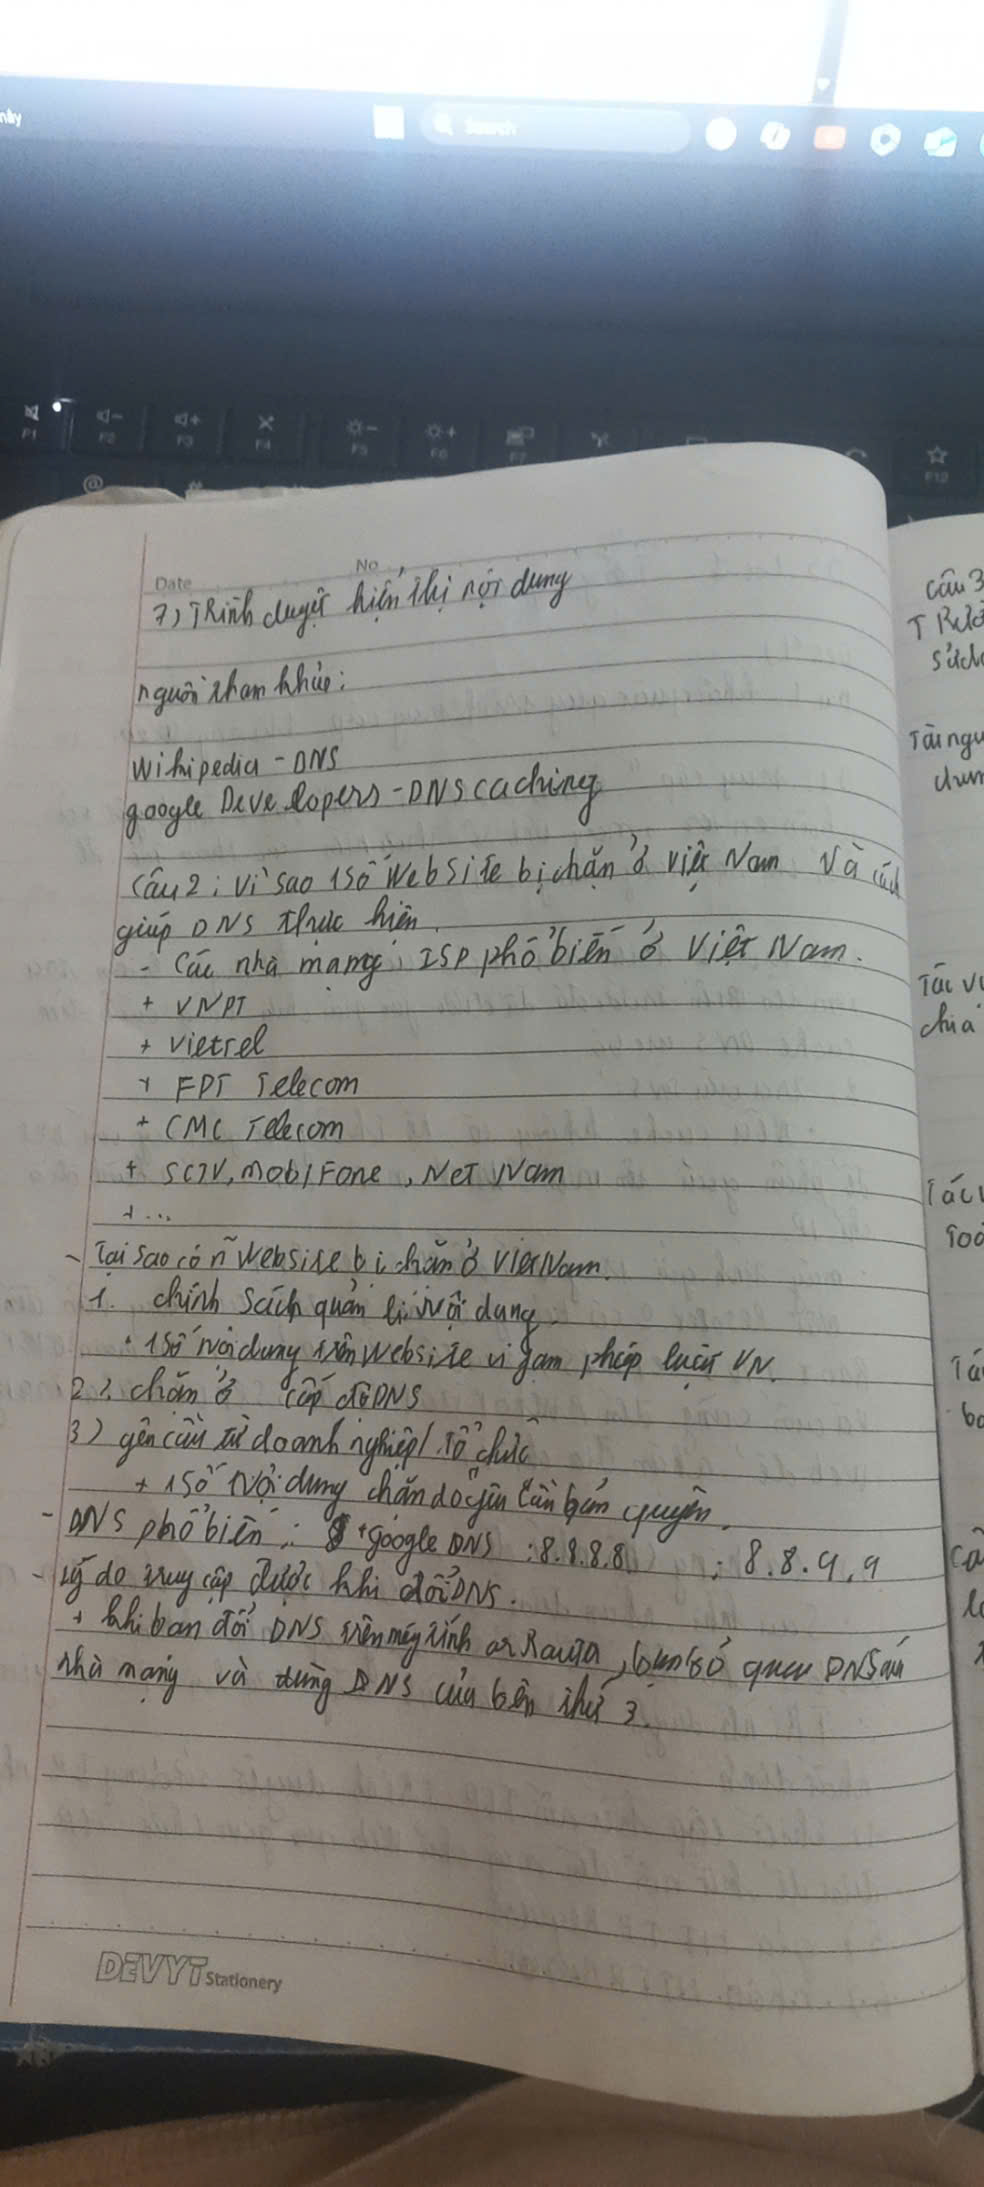 Search
F1 F2 F3 F4 F5 F6 F7 F12
@ #
Date No
7) Trình duyệt hiển thị nội dung
nguồn tham khảo:
Wikipedia - DNS
google Developers - DNS caching
Câu 2: Vì sao 1 số Website bị chặn ở Việt Nam Và cách
giúp DNS thực hiện.
- Các nhà mạng ISP phổ biến ở Việt Nam.
+ VNPT
+ Viettel
+ FPT Telecom
+ CMC Telecom
+ SCTV, mobiFone, Net Nam
+ ...
- Tại sao có ~ Website bị chặn ở Viet Nam.
1. chính sách quản lí Nội dung
+ 1 số Nội dung trên Website vi fạm pháp luật VN.
2. chặn ở cấp độ DNS
3) yên cầu từ doanh nghiệp / Tổ chức
+ 1 số Nội dung chặn do bản quyền.
- DNS phổ biến: + google DNS : 8.8.8.8 ; 8.8.9.9
- lý do truy cập được khi đổi DNS.
+ khi bạn đổi DNS trên máy tính or , bạn bỏ qua DNS
nhà mạng và dùng DNS của bên thứ 3.
DEVYT Stationery
Câu 3